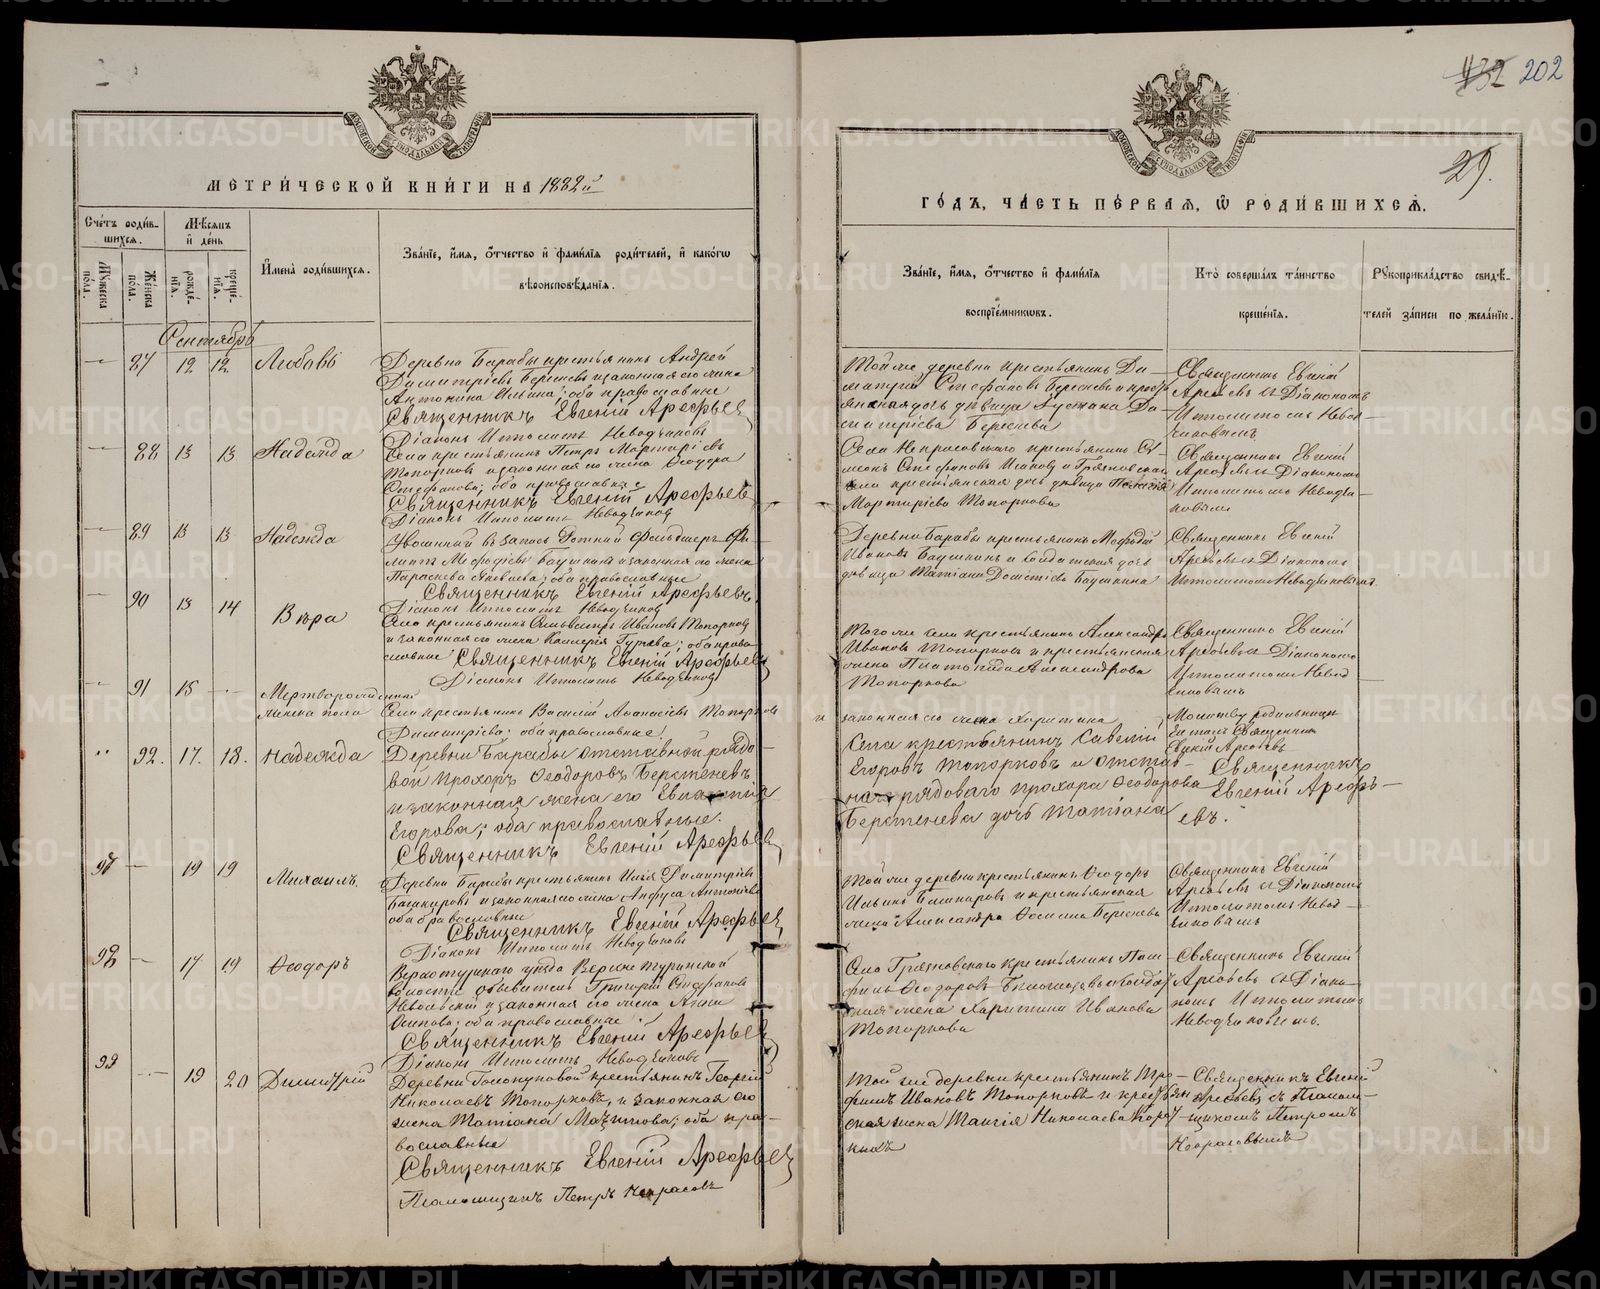 132 202
29.
МЕТРИ́ЧЕСКОЙ КНИ́ГИ НА 1882й
Сче́тъ роди́в-
шихся.
Мѣ́сяцъ
и҆ де́нь
Му́жеска
по́ла.
Же́нска
по́ла.
рожде́-
нїѧ.
креще́-
нїѧ.
И҆мена̀ роди́вшихсѧ.
Зва́нїе, и҆́мѧ, ѻ҆́тчество и҆ фами́лїѧ роди́телей, и҆ како́гѡ
вѣроисповѣ́данїѧ.
Сентябрь
— 87 12 12 Любовь
Деревни Барабы крестьянинъ Андрей
Димитріевъ Берсеневъ и законная его жена
Антонина Ильина; оба православные
Священникъ Евгеній Арефьев
Діаконъ Ипполитъ Неводчиковъ
— 88 13 13 Надежда
Села крестьянинъ Петръ Мартиріевъ
Топорковъ и законная его жена Ѳеодора
Стефанова; оба православные
Священникъ Евгеній Арефьев
Діаконъ Ипполитъ Неводчиков
— 89 13 13 Надежда
Уволенный въ запасъ Ротный Фельдшеръ Фи-
липпъ Меѳодіевъ Баушкинъ и законная его жена
Параскева Яковлева; оба православные
Священникъ Евгеній Арефьевъ
Діаконъ Ипполитъ Неводчиков
— 90 13 14 Вѣра
Села крестьянинъ Сильвестръ Ивановъ Топорков
и законная его жена Гурьева; оба право-
славные Священникъ Евгеній Арефьев
Діаконъ Ипполитъ Неводчиков
— 91 15 — Мертворожденная
женска пола
Села крестьянинъ Василій Аѳанасіевъ Топорков
Димитріева; оба православные
" 92. 17. 18. Надежда
Деревни Барабы отставной рядо-
вой Прохоръ Ѳеодоровъ Берстеневъ
и законная жена его
Егорова; оба православные.
Священникъ Евгеній Арефьев
97 — 19 19 Михаилъ.
Деревни Барабы крестьянинъ Илія Димитріевъ
Башкировъ и законная его жена Анфуса Антоніева
оба православные
Священникъ Евгеній Арефьев
Діаконъ Ипполитъ Неводчиковъ
98 — 17 19 Ѳеодоръ
Верхотурскаго уѣзда
волости обыватель Григорій Стефановъ
и законная его жена Анна
Осипова; оба православные
Священникъ Евгеній Арефьев
Діаконъ Ипполитъ Неводчиковъ
99 — 19 20 Димитрій
Деревни крестьянинъ Георгій
Николаевъ Топорковъ, и законная его
жена Татіана оба пра-
вославные
Священникъ Евгеній Арефьев
Псаломщикъ Петръ Некрасовъ
ГО́ДЪ, ЧА́СТЬ ПЕ́РВАѦ, Ѽ РОДИ́ВШИХСѦ.
Зва́нїе, и҆́мѧ, ѻ҆́тчество и҆ фами́лїѧ
воспрїе́мникѡвъ.
Кто̀ соверша́лъ та́инство
креще́нїѧ.
Рꙋкоприкла́дство свидѣ́-
телей за́писи по жела́нїю.
Той же деревни крестьянинъ Ди-
митрій Стефановъ Берсеневъ и кресть-
янская дочь дѣвица Ди-
митріева Берсенева
Священникъ Евгеній
Арефьевъ съ Діакономъ
Ипполитомъ Невод-
чиковымъ
Села Некрасовскаго крестьянинъ Си-
меонъ Стефановъ и Грязновскаго
села крестьянская дочь дѣвица
Мартиріева Топоркова
Священникъ Евгеній
Арефьевъ съ Діакономъ
Ипполитомъ Неводчи-
ковымъ
Деревни Барабы крестьянинъ Меѳодій
Ивановъ Баушкинъ и солдатская дочь
дѣвица Татіана Баушкина
Священникъ Евгеній
Арефьевъ съ Діакономъ
Ипполитомъ Неводчиковымъ
Того же села крестьянинъ Александръ
Ивановъ Топорковъ и крестьянская
жена Александрова
Топоркова
Священникъ Евгеній
Арефьевъ съ Діакономъ
Ипполитомъ Невод-
чиковымъ
и законная его жена Харитина
Молитву родильницѣ
Священникъ
Евгеній Арефьевъ
Села крестьянинъ Савелій
Егоровъ Топорковъ и отстав-
наго рядоваго Прохора Ѳеодорова
Берстенева дочь Татіана
Священникъ
Евгеній Арефь-
евъ.
Той же деревни крестьянинъ Ѳеодоръ
Ильинъ Башкировъ и крестьянская
жена Александра Берсенева
Священникъ Евгеній
Арефьевъ съ Діакономъ
Ипполитомъ Невод-
чиковымъ
Села Грязновскаго крестьянинъ
Ѳеодоровъ
жена Харитина Иванова
Топоркова
Священникъ Евгеній
Арефьевъ съ Діако-
номъ Ипполитомъ
Неводчиковымъ.
Той же деревни крестьянинъ Тро-
фимъ Ивановъ Топорковъ и крестьян-
ская жена Николаева
Священникъ Евгеній
Арефьевъ съ Псалом-
щикомъ Петромъ
Некрасовымъ
METRIKI.GASO-URAL.RU